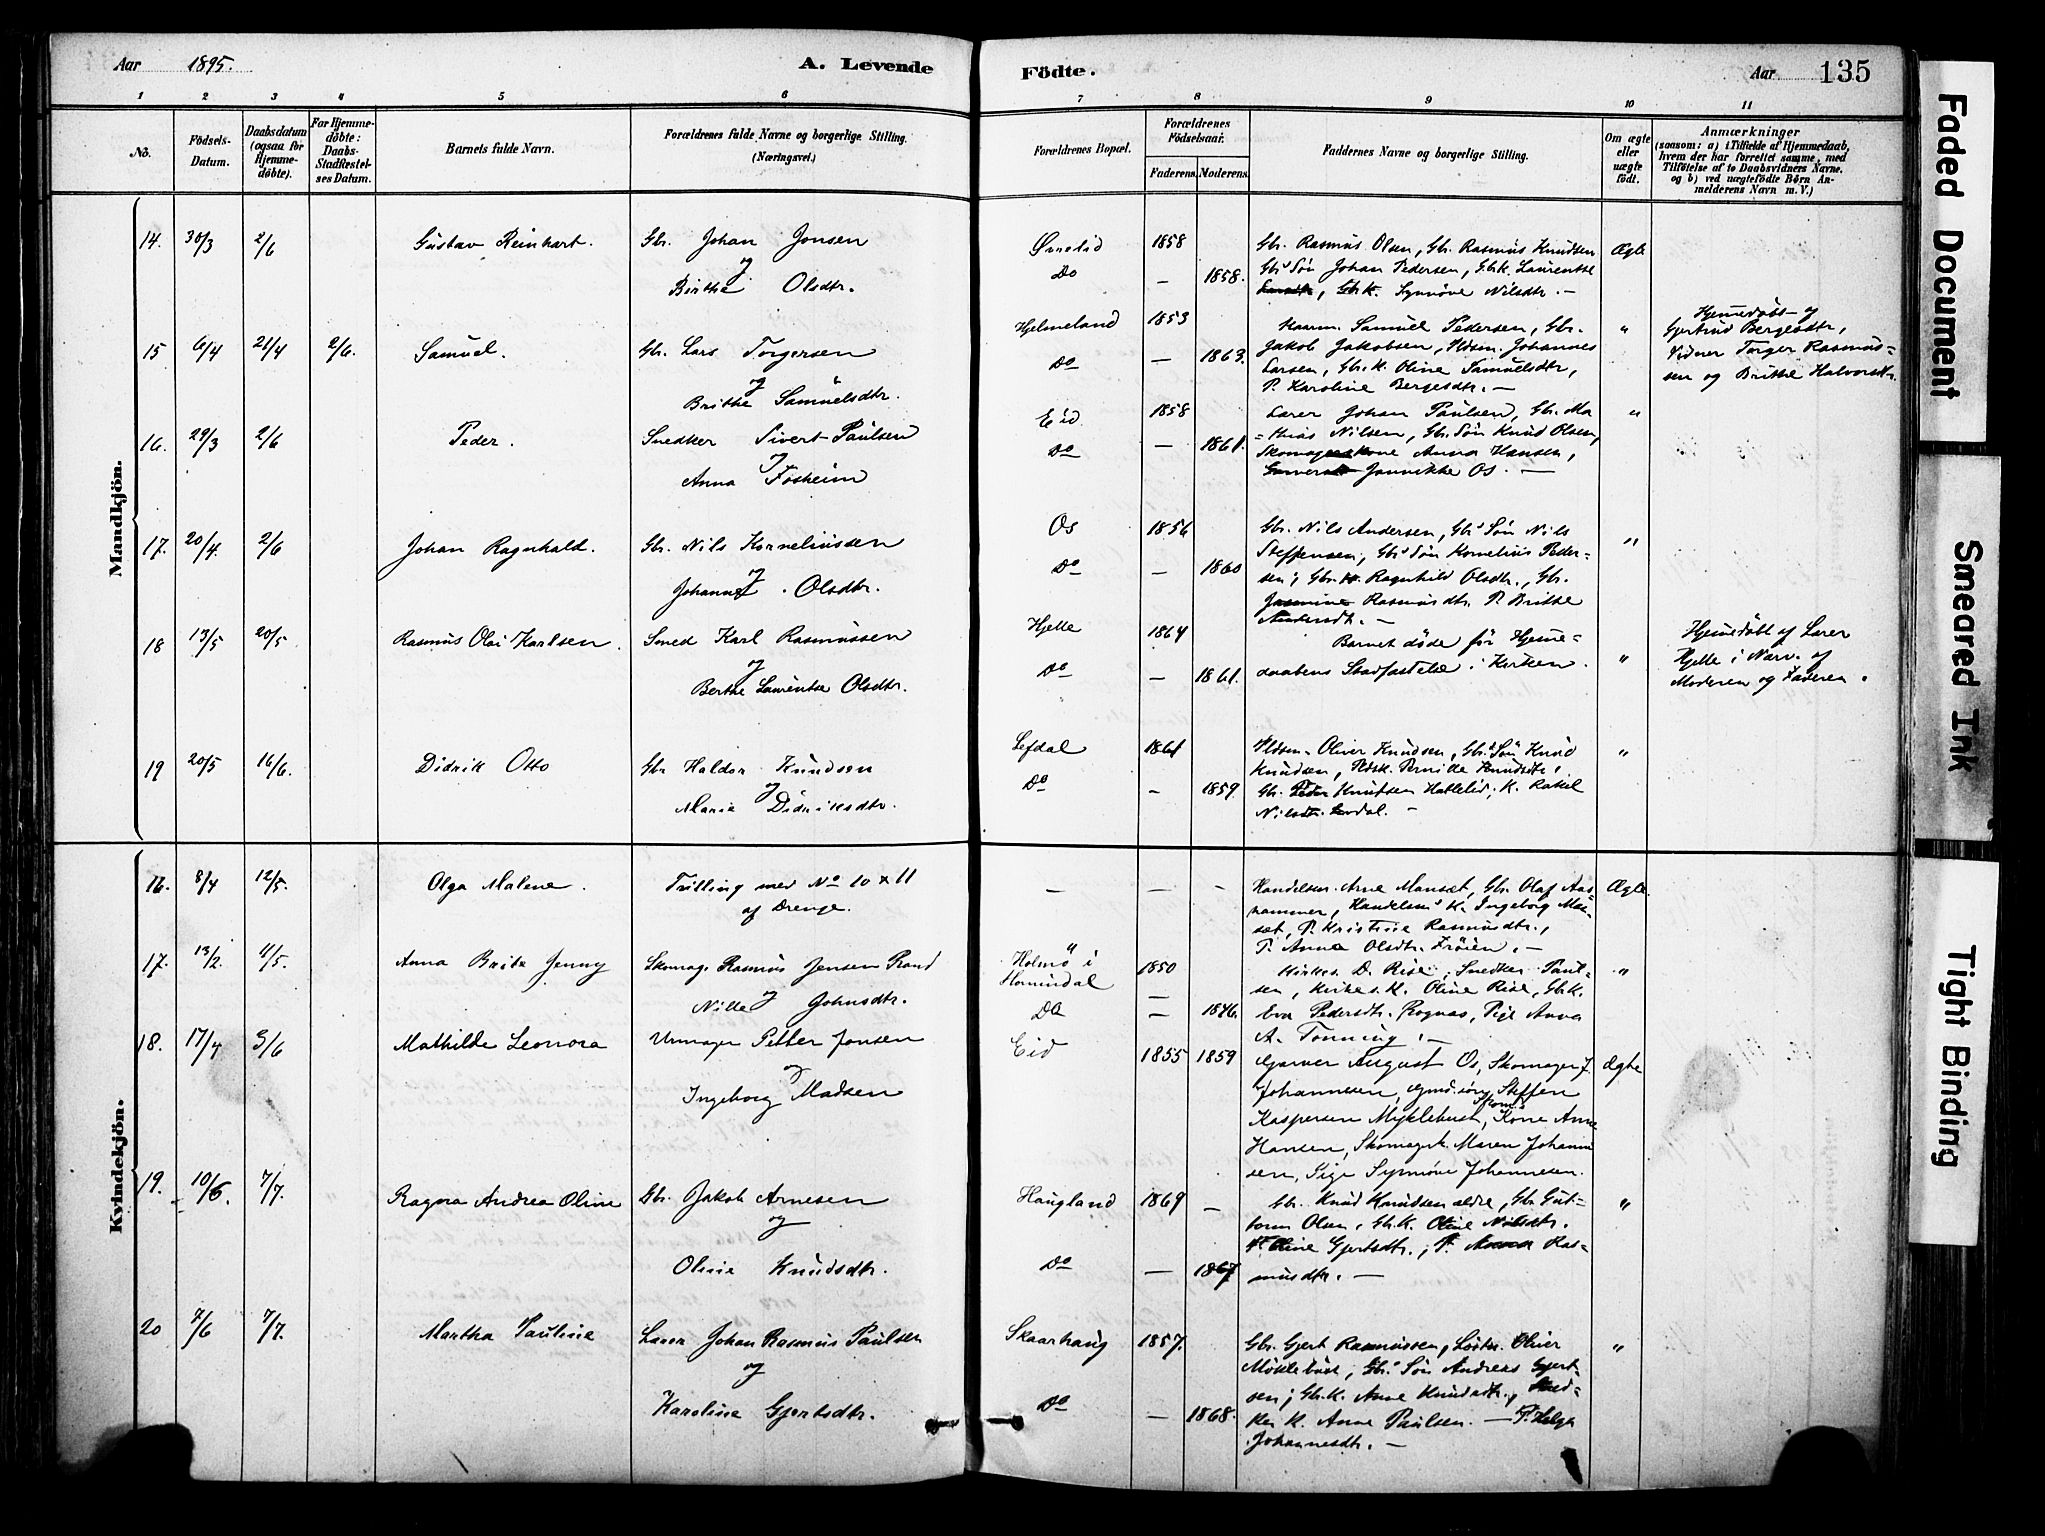 Aar 1895.
A. Levende
Födte.
Aar 135
1 2 3 4 5 6 7 8 9 10 11
No.
Födsels-Datum.
Daabsdatum (ogsaa for Hjemme-döbte).
For Hjemme-döbte: Daabs-Stadfæstel-ses Datum.
Barnets fulde Navn.
Forældrenes fulde Navne og borgerlige Stilling. (Næringsvei.)
Forældrenes Bopæl.
Forældrenes Födselsaar.
Faderens. Moderens.
Faddernes Navne og borgerlige Stilling.
Om ægte eller uægte födt.
Anmærkninger
(saasom: a) i Tilfælde af Hjemmedaab, hvem der har forrettet samme, med Tilföielse af to Daabsvidners Navne. og b) ved uægtefödte Börn An-melderens Navn m. V.)
Mandkjön.
14. 30/3 2/6 Gustav Reinhart. Gbr. Johan Jonsen
og
Birthe Olsdtr.
1858
Do — 1858.
Gbr. Rasmus Olsen, Gbr. Rasmus Knudsen
Gbr Søn Johan Pedersen, Gbk. Laurentse
Gbr. K. Synnöve Nilsdtr. —
Ægte
15 6/4 21/4 2/6. Samuel. Gbr. Lars Torgersen
og
Brithe Samuelsdtr.
Hjelmeland 1853
Do — 1863.
Samuel Pedersen, Gbr.
Jakob Jakobsen, Johannes
Larsen, Gbr. K. Oline Samuelsdtr,
P. Karoline Bergesdtr. —
"
Hjemedøbt af
Gjertrud
Vidner Torger Rasmus=
sen og Brithe Halvorsdtr.
16. 29/3 2/6 Peder. Snedker Sivert Paulsen
og
Anna Fosheim
Eid 1858
Do — 1861.
Lærer Johan Paulsen, Gbr. Ma
=thias Nilsen, Gbr. Søn Knud Olsen,
Skomagerkone Anna Hansen,
Jannikke Os. —
"
17. 20/4. 2/6 Johan Ragnhald. Gbr. Nils Korneliussen
og
Olsdtr.
Os 1856
Do — 1860
Gbr. Nils Andersen, Gbr Søn Nils
Steffensen, Gbr Søn Kornelius Peder-
sen, Gbr. K. Ragnhild Olsdtr., Gbr.
Rasmusdtr. P. Brithe
Andersdt. —
"
18 13/5 20/5 Rasmus Olai Karlsen. Smed Karl Rasmussen
og
Berthe Laurentse Olsdtr.
Hjelle 1864
Do — 1861.
Barnet døde før Hjeme=
daabens Stadfæstelse i Kirken.
"
Hjemedøbt af Lærer
Hjelle i Nærv. af
Moderen og Faderen.
19 20/5 16/6. Didrik Otto Gbr Haldor Knudsen
og
Marie Didriksdtr.
Lefdal 1861
Do - 1859.
Oliver Knudsen, Gbr. Søn Knud
Knudsen, Pernille Knudsdtr,
Gbr. Peder Knutsen K. Rakel
"
Kvindekjön.
16. 8/4 12/5. Olga Malene. Trilling med No 10 & 11
af Drenge.
— — -
Handelsm. Arne Manset, Gbr. Olaf Aas=
hammer, Handelsm K. Ingeborg Man-
set, P. Kristine Rasmusdtr.,
P. Anna Olsdtr. Frøien. —
Ægte.
17. 13/2. 11/5. Anna Brite Jenny Skomag. Rasmus Jensen Rand
og
Nille Johnsdtr.
Holmö i
Hornindal 1850
—
Do — 1846.
Kirkes. D. Rise, Snedker Paul-
sen, Kirkes. K. Oline Rise, Gbr. K.
Eva Pedersdtr. Rognas, Pige Anna
A. Tonning. —
"
18. 17/4 3/6 Mathilde Leonora Urmager Petter Jonsen
og
Ingeborg Madsen
Eid 1855 1859
Garver August Os, Skomager J.
Johannesen, Steffen
Kaspersen Myklebust, Kone Anne
Hansen, Skomagerk. Maren Johanne
sen, Pige Synnöve Johannesen.
Ægte
19. 10/5. 7/7. Ragna Andrea Oline Gbr. Jakob Arnesen
og
Oline Knudsdtr.
Haugland 1869 —
Do — 1867
Gbr. Knud Knudsen ældre, Gbr Gut-
torm Olsen, Gbr. K. Oline Nilsdtr.
Oline Gjertsdtr., P. Anna Ras=
musdtr. —
"
20 7/6 7/7. Martha Pauline Lærer Johan Rasmus Paulsen
og
Karoline Gjertsdtr.
Skaarhaug 1857.
Do — 1868.
Gbr. Gjert Rasmussen, Oliver
Möklebust, Gbr Søn Andreas Gjert
sen, Gbr. K. Anne Knudsdtr., Sned=
ker K. Anne Paulsen. — P. Helga
Johannesdtr. —
"
Faded Document
Smeared Ink
Tight Binding